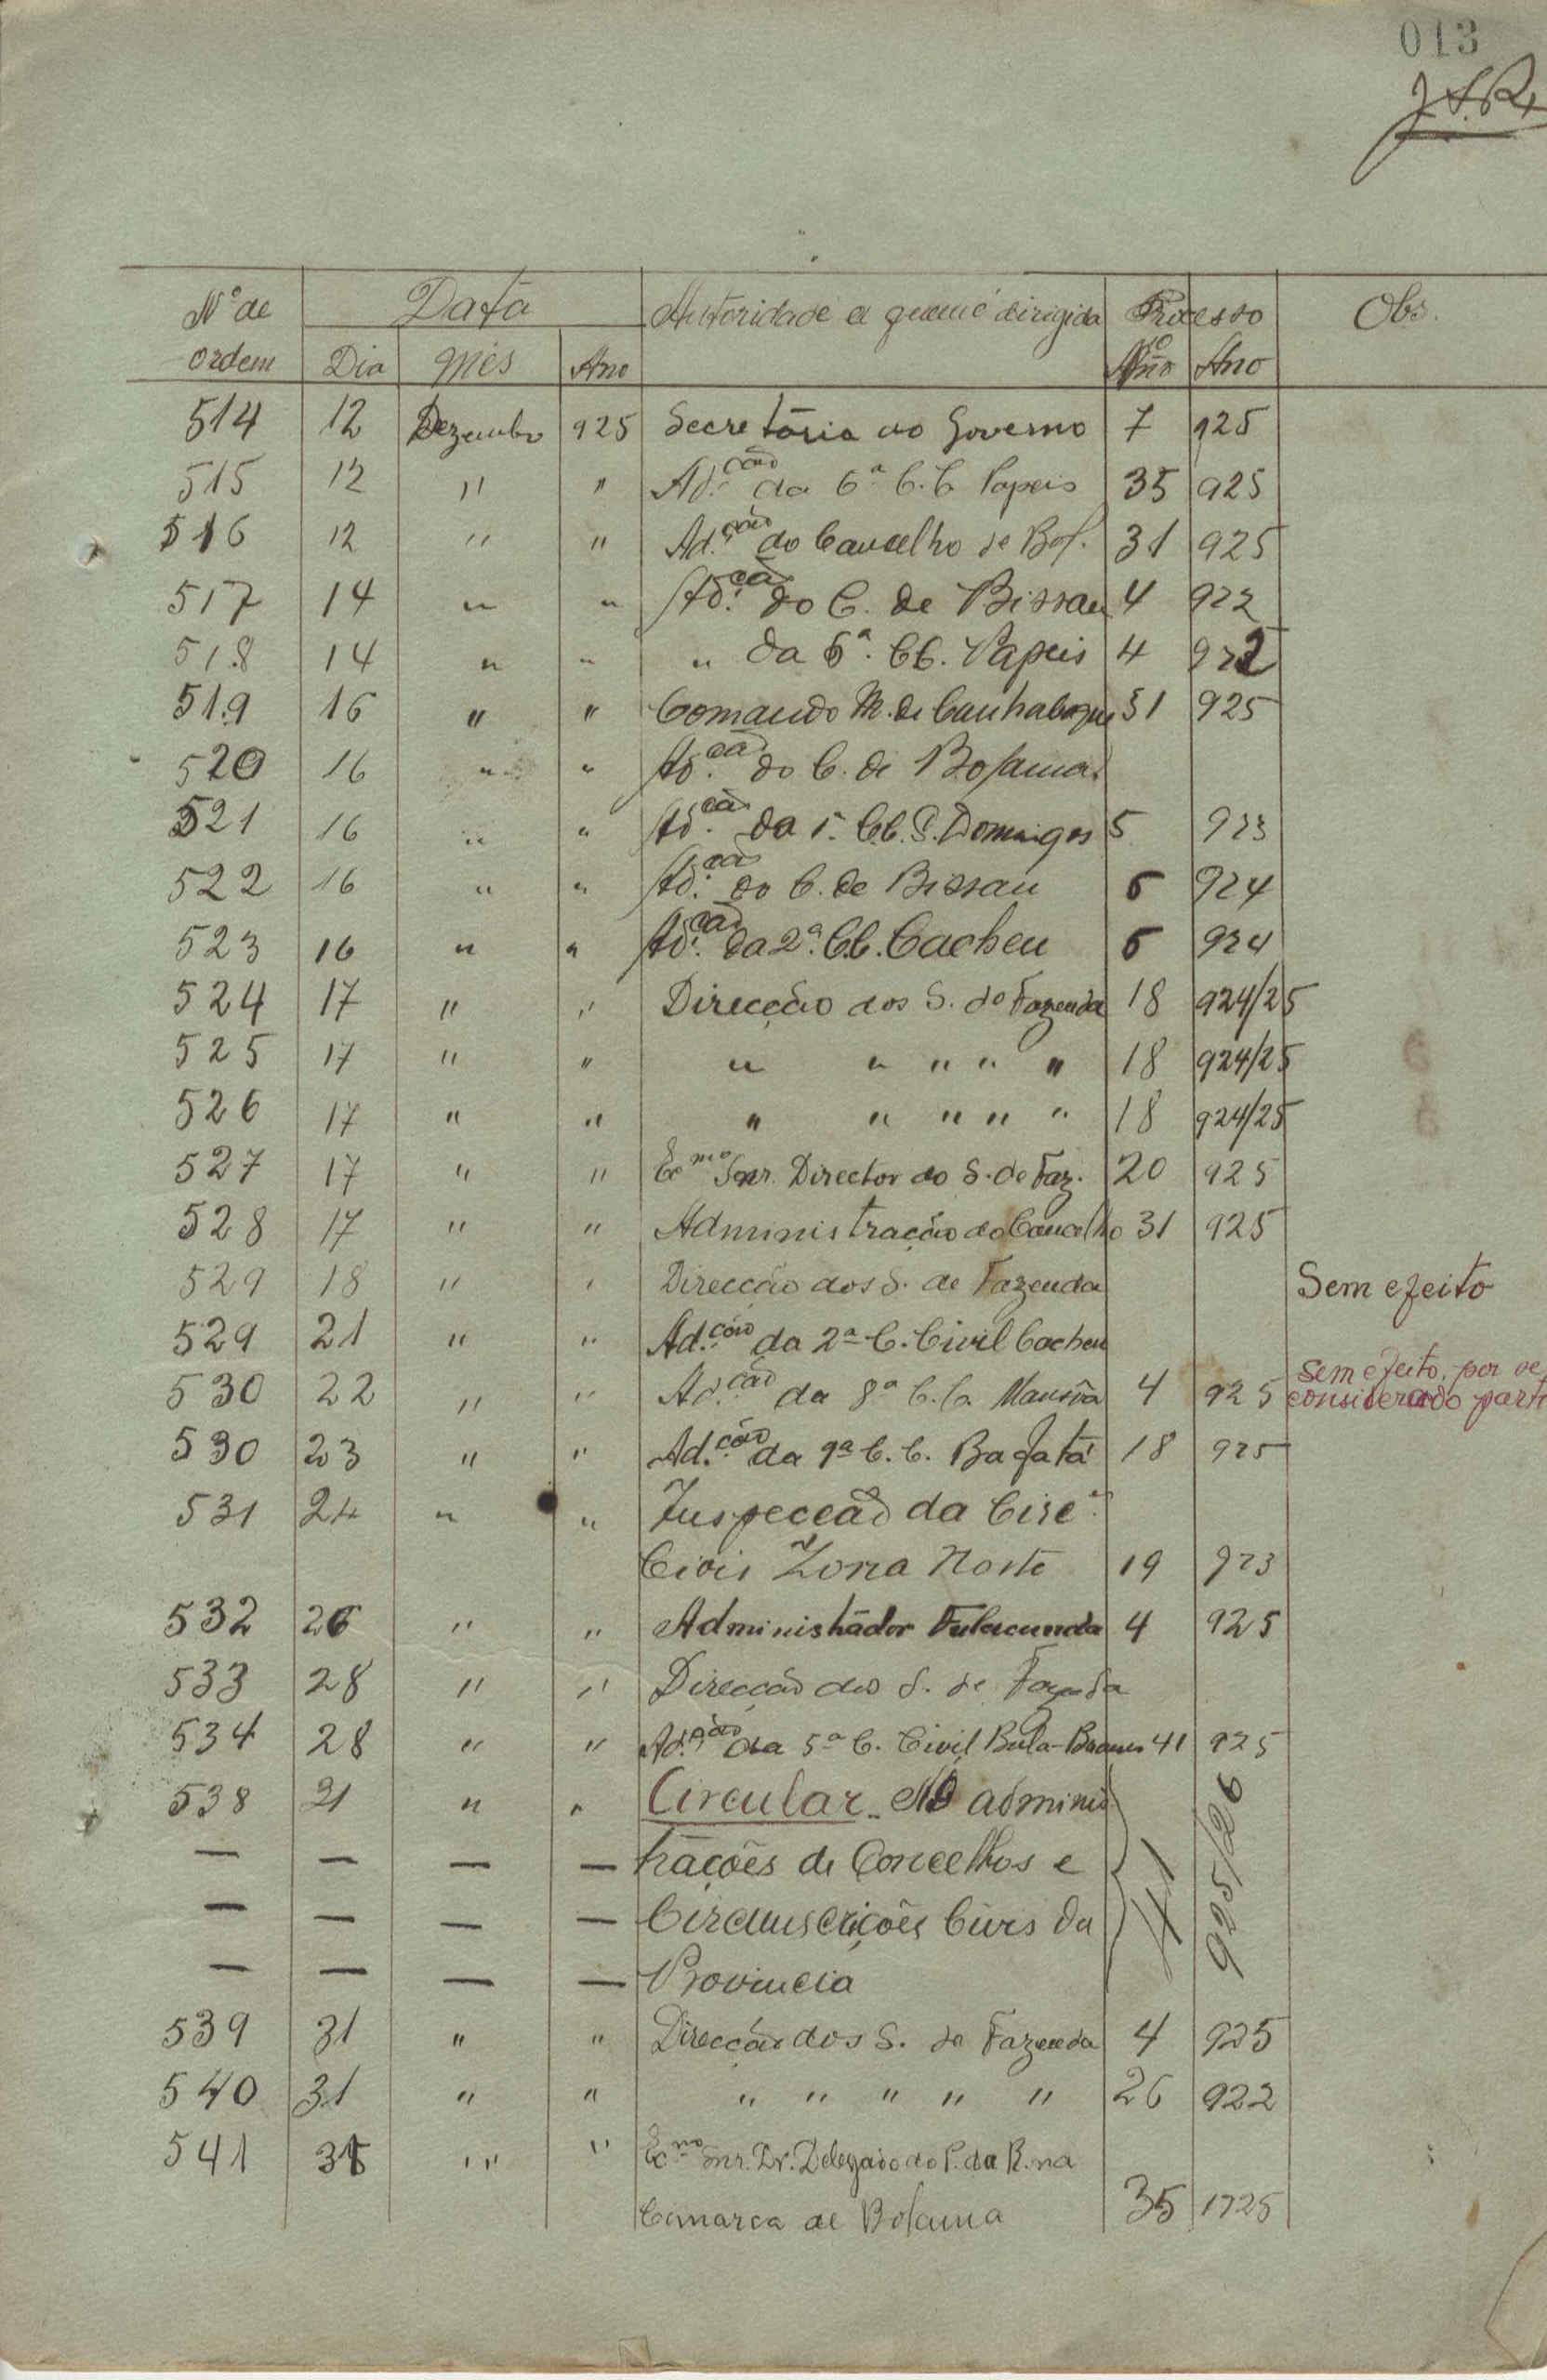 013
Nº de Data Autoridade a quem é dirigida Processo Obs.
ordem Dia Mês Ano Nº Ano
514 12 Dezembro 925 Secretária do Governo 7 925
515 12 " " Ad.ção da 6ª C.C. Papeis 35 925
516 12 " " Ad.ção do Concelho de Bol. 31 925
517 14 " " Ad.ção do C. de Bissau 4 922
518 14 " " " da 6ª. CC. Papeis 4 922
519 16 " " Comando M. de Canhabaque 31 925
520 16 " " Ad.ção do C. de Bolama
521 16 " " Ad.ção da 1ª. C.C. S. Domingos 5 923
522 16 " " Ad.ção do C. de Bissau 6 924
523 16 " " Ad.ção da 2ª. C.C. Cacheu 6 924
524 17 " " Direcção dos S. de Fazenda 18 924/25
525 17 " " " " " " " 18 924/25
526 17 " " " " " " " 18 924/25
527 17 " " Exmo Snr. Director do S. de Faz. 20 925
528 17 " " Administração do Concelho 31 925
529 18 " " Direcção dos S. de Fazenda Sem efeito
529 21 " " Ad.ção da 2ª C. Civil Cacheu
Sem efeito, por
530 22 " " Ad.ção da 8ª C.C. Mansôa 4 925 considerado
530 23 " " Ad.ção da 9ª C.C. Bafatá 18 925
531 24 " " Inspecção da Circ.
Civis Zona Norte 19 923
532 26 " " Administrador Fulacunda 4 925
533 28 " " Direcção dos S. de Fazenda
534 28 " " Ad.ção da 5ª C. Civil Bula- 41 925
538 21 " " Circular adminis
— — — — trações de Concelhos e 41 925/26
— — — — Circunscrições Civis da
— — — — Provincia
539 31 " " Direcção dos S. de Fazenda 4 925
540 31 " " " " " " " 26 922
541 31 " " Exmo Snr. Dr. Delegado do P. da R. na
Comarca de Bolama 35 1925